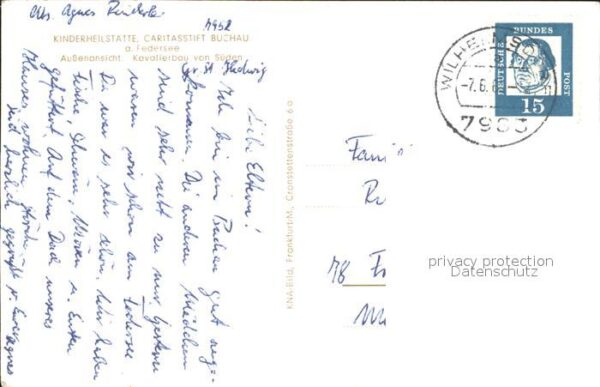 Abs. Agnes
7952
KINDERHEILSTÄTTE, CARITASSTIFT BUCHAU
a. Federsee
Außenansicht. Kavalierbau von Süden
Gr. St. Hedwig
Liebe Eltern!
Ich bin in Buchau gut ange-
kommen. Die anderen Mädchen
sind sehr nett zu mir. Gestern
waren wir schon am Federsee
Da war es sehr schön. Wir haben
Fische, Schwäne, Möwen u. Enten
gefüttert. Auf dem Dach unseres
Hauses wohnen Störche.
seid herzlich gegrüßt v. Agnes
KNA-Bild, Frankfurt/M., Cronstettenstraße 6 a
WILHELMSDORF
-7.6.6
7983
DEUTSCHE BUNDESPOST
15
Fami
78 F
privacy protection
Datenschutz